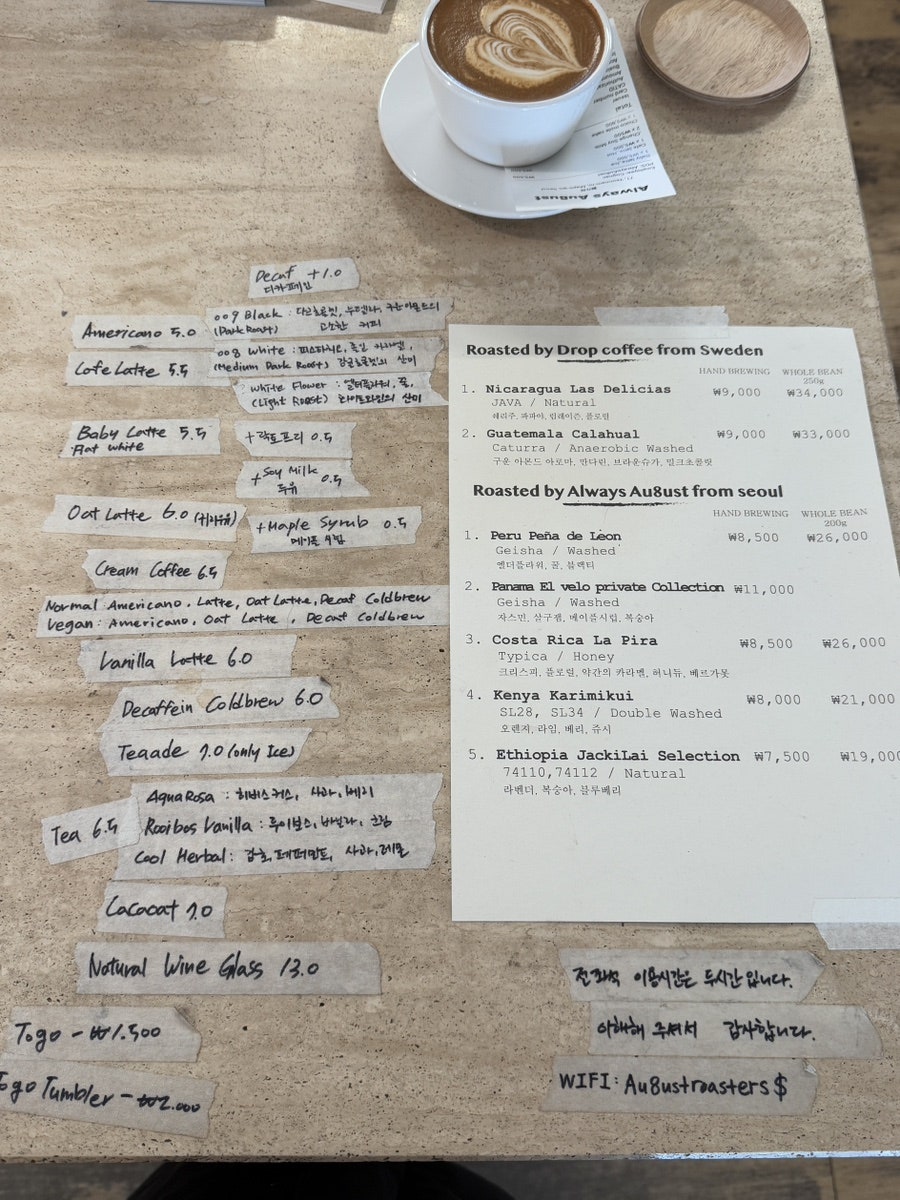 Always Au8ust
Total
Decaf +1.0
디카페인
Americano 5.0
009 Black : 다크초콜릿, 누텔라, 구운아몬드의
(Dark Roast) 고소한 커피
Cafe Latte 5.5
008 White : 피스타치오, 졸인 카라멜,
(Medium Dark Roast) 감귤초콜릿의 산미
White Flower : 엘더플라워, 꿀,
(Light Roast) 라이트와인의 산미
Baby Latte 5.5
Flat white
+락토프리 0.5
+Soy Milk 0.5
두유
Oat Latte 6.0 (귀리우유)
+Maple Syrub 0.5
메이플시럽
Cream Coffee 6.5
Normal Americano, Latte, Oat Latte, Decaf Coldbrew
Vegan: Americano, Oat Latte, Decaf Coldbrew
Vanilla Latte 6.0
Decaffein Coldbrew 6.0
Teaade 7.0 (only Ice)
Tea 6.5
AquaRosa : 히비스커스, 사과, 베리
Rooibos Vanilla : 루이보스, 바닐라, 크림
Cool Herbal : 감초, 페퍼민트, 사과, 레몬
Cacocat 7.0
Natural Wine Glass 13.0
Togo - ₩1.500
Togo Tumbler - ₩2.000
Roasted by Drop coffee from Sweden
HAND BREWING WHOLE BEAN
250g
1. Nicaragua Las Delicias ₩9,000 ₩34,000
JAVA / Natural
쉐리주, 파파야, 립레이즌, 플로럴
2. Guatemala Calahual ₩9,000 ₩33,000
Caturra / Anaerobic Washed
구운 아몬드 아로마, 만다린, 브라운슈가, 밀크초콜릿
Roasted by Always Au8ust from seoul
HAND BREWING WHOLE BEAN
200g
1. Peru Peña de Leon ₩8,500 ₩26,000
Geisha / Washed
엘더플라워, 꿀, 블랙티
2. Panama El velo private Collection ₩11,000
Geisha / Washed
자스민, 살구잼, 메이플시럽, 복숭아
3. Costa Rica La Pira ₩8,500 ₩26,000
Typica / Honey
크리스피, 플로럴, 약간의 카라멜, 허니듀, 베르가못
4. Kenya Karimikui ₩8,000 ₩21,000
SL28, SL34 / Double Washed
오렌지, 라임, 베리, 쥬시
5. Ethiopia JackiLai Selection ₩7,500 ₩19,000
74110,74112 / Natural
라벤더, 복숭아, 블루베리
전좌석 이용시간은 두시간입니다.
이해해 주셔서 감사합니다.
WIFI: Au8ustroasters$